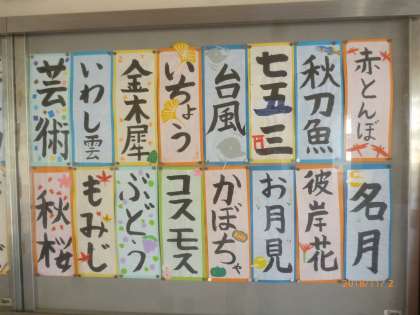 赤とんぼ
秋刀魚
七五三
台風
いちょう
金木犀
いわし雲
芸術
名月
彼岸花
お月見
かぼちゃ
コスモス
ぶどう
もみじ
秋桜
2018/11/2